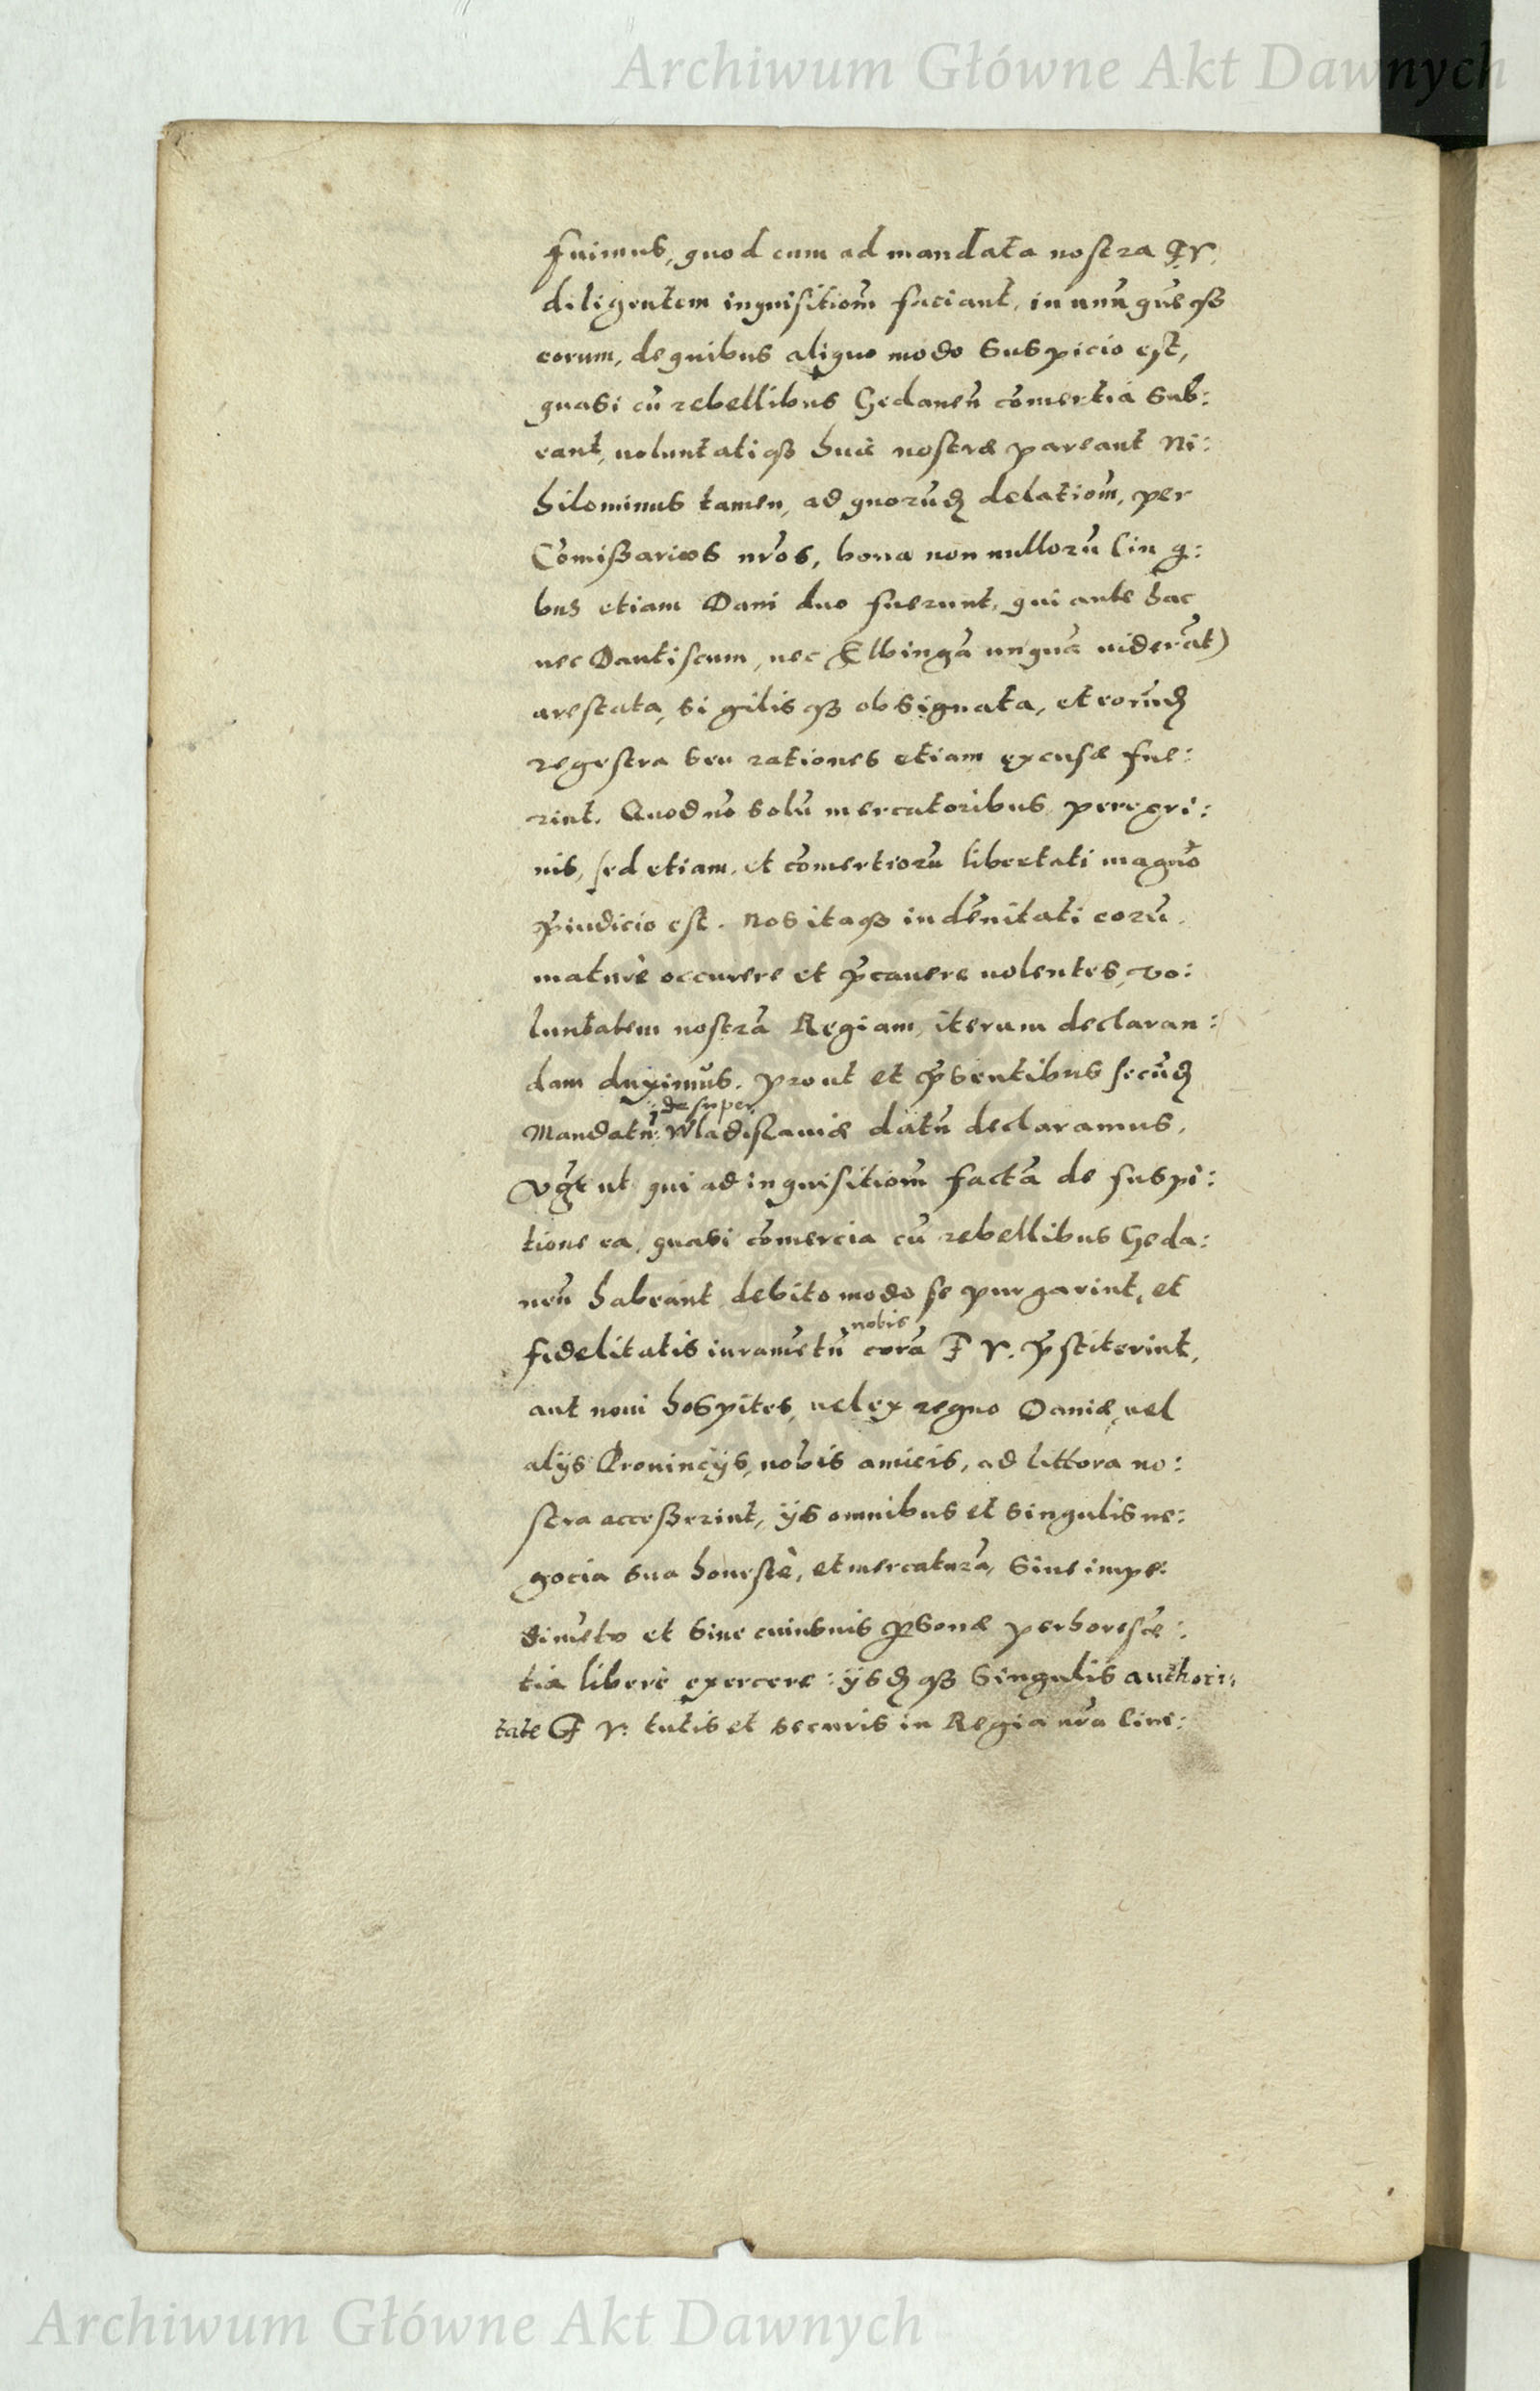 Archiwum Główne Akt Dawnych
fuimus, quod cum ad mandata nostra F. V.
diligentem inquisitiom̃ faciant, in unũ quẽqȝ
eorum, de quibus aliquo modo suspicio est,
quasi cũ rebellibus Gedaneñ cõmertia sub:
eant, voluntatiqȝ huic nostræ pareant Ni:
hilominus tamen, ad quorũd̃ delatiom̃, per
Cõmißarios nr̃os, bona non nullorũ (in q:
bus etiam Dani duo fuerunt, qui ante hac
nec Dantiscum, nec Elbingã unquã viderãt)
arestata, sigilisqȝ obsignata, et eorũd̃
regestra seu rationes etiam excusæ fue:
rint. Quod nõ solũ mercatoribus peregri:
nis, sed etiam, et cõmertiorũ libertati magno
p̃iudicio est. Nos itaqȝ indẽnitati eorũ
maturè occurere et p̃cavere volentes, vo:
luntatem nostrã Regiam, iterum declaran:
dam duximus. prout et p̃sentibus secũd̃
desuper
Mandatũ: Wladislaviæ datũ declaramus,
ut qui ad inquisitiom̃ factã de suspi:
tione ea, quasi cõmercia cũ rebellibus Geda:
neñ habeant debito modo se purgarint, et
nobis
fidelitatis iuramẽtũ corã F. V. p̃stiterint,
aut novi hospites, vel ex regno Daniæ, vel
alijs Provincijs, nobis amicis, ad littora no:
stra acceßerint, ijs omnibus et singulis ne:
gocia sua honestè, et mercaturã, sine impe:
dimẽto et sine cuiusvis p̱sonæ perhorescẽ:
tia liberè exercere: ijsd̃qȝ singulis authori:
tate F. V. tutis et securis in Regia nr̃a live:
Archiwum Główne Akt Dawnych